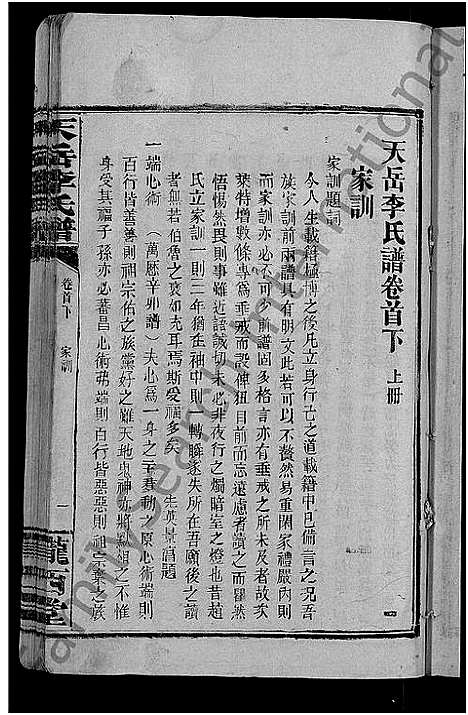 天岳李氏譜卷首下 上册
家訓
家訓題詞
今人生載籍極博之後凡立身行己之道載籍中已備言之況吾
族家訓前兩譜具有明文此若可以不贅然易重閑家禮嚴內則
而家訓亦必不可少前譜固多格言亦有垂戒之所未及者故矣
棻特增數條專爲垂戒而設俾狃目前而忘遠慮者讀之而瞿然
悟惕然畏則事雖近語誠切未必非夜行之燭暗室之燈也昔趙
氏立家訓一則三年猶在袖中則轉瞬遂失所在吾願後之讀
者無若伯魯之褎如充耳焉斯受福多矣 先英景高題
一端心術(萬歷辛卯譜)夫心爲一身之主宰動之原心術端則
百行皆善善則祖宗佑之族黨好之雖天地鬼神亦將默相之不惟
身受其福子孫亦必蕃昌心術弗端則百行皆惡惡則祖宗棄之族
天岳李氏譜
卷首下 家訓
一
隴西堂
FamilySearch International